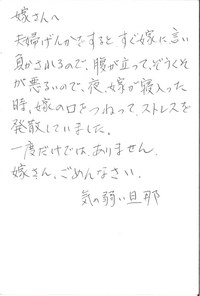 嫁さんへ
夫婦げんかをすると、すぐ嫁に言い
負かされるので、腹が立って、ぞうくそ
が悪るいので、夜、嫁が寝入った
時、嫁の口をつねって、ストレスを
発散していました。
一度だけでは、ありません。
嫁さん、ごめんなさい。
気の弱い旦那